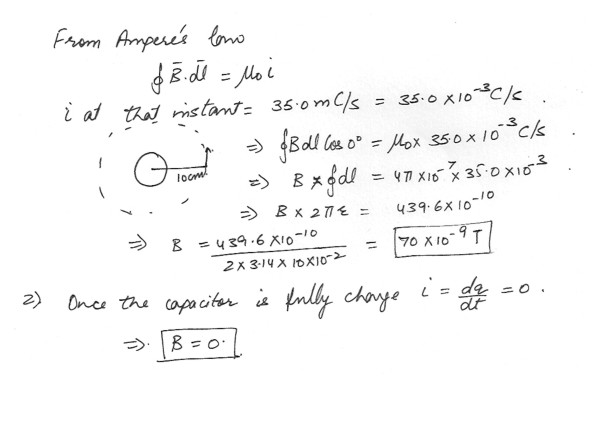 From Ampere's law
∮ B̄.d̄l = μ₀ i
i at that instant = 35.0 mC/s = 35.0 x 10⁻³ C/s .
⇒ ∮Bdl Cos 0° = μ₀x 35.0 x 10⁻³ C/s .
10cm
⇒ B x ∮dl = 4π x10⁻⁷ x 35.0 x10⁻³
⇒ B x 2π r = 439.6 x 10⁻¹⁰
⇒ B = 439.6 x10⁻¹⁰ / 2 x 3.14 x 10 x10⁻² = 70 x 10⁻⁹ T
2) Once the capacitor is fully charge i = dq/dt = 0 .
⇒. B = 0.